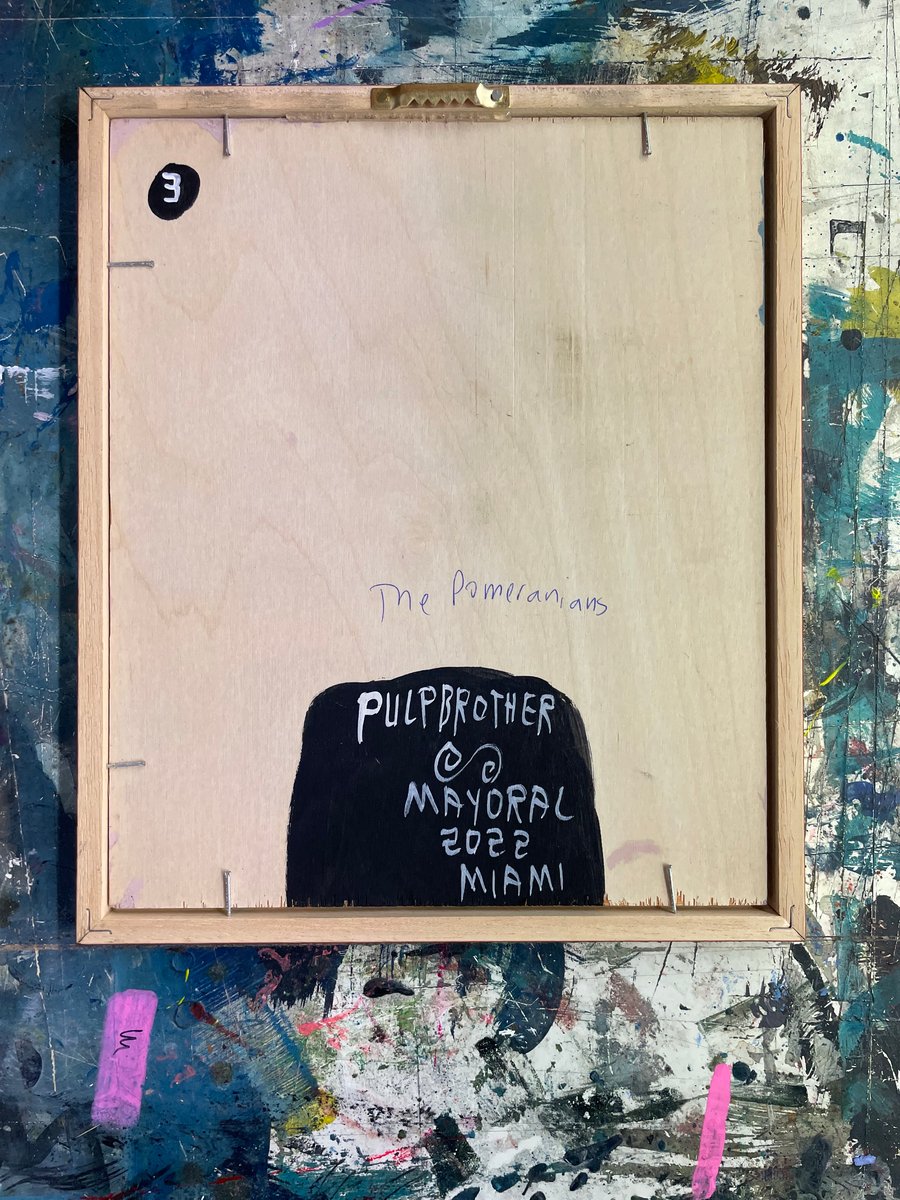 3
The Pomeranians
PULPBROTHER
MAYORAL
2022
MIAMI